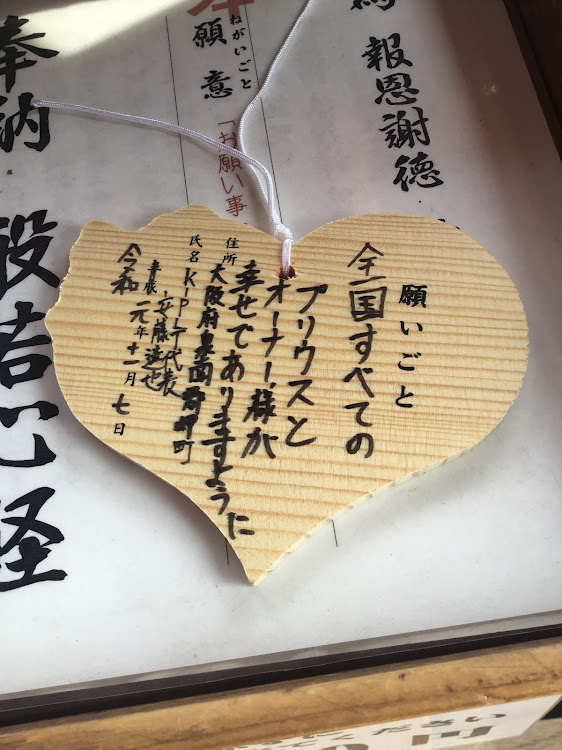 報恩謝徳
ねがいごと
願意
「お願い事
奉納
般若心経
願いごと
全国すべての
プリウスと
オーナー様が
幸せでありますように
住所
大阪府泉南郡岬町
氏名
KIPLT代表
安藤達也
令和元年十一月七日
ください
円